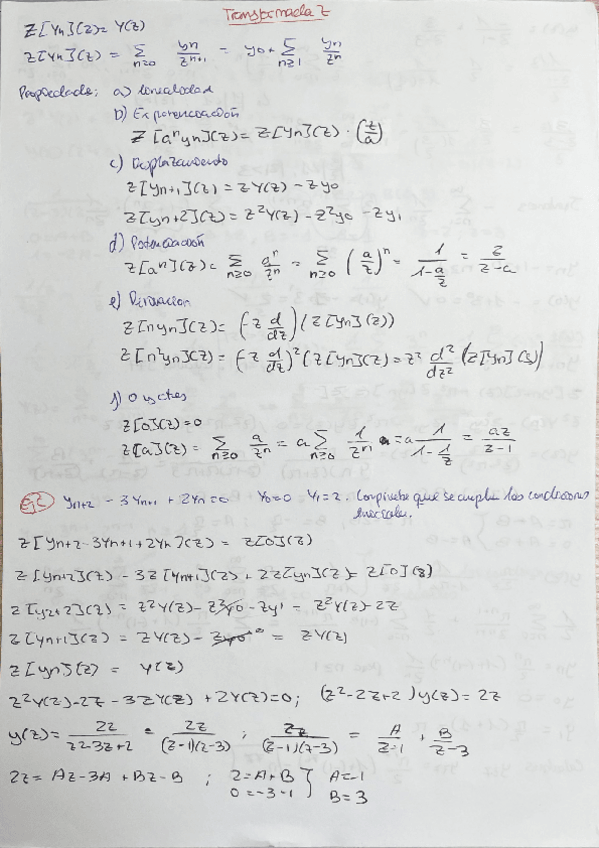 Transformada Z
Z[yn](z)=Y(z)
Z[yn](z) = Σ n≥0 yn/z^(n+1) = y0+Σ n≥1 yn/z^n
Propiedades: a) Linealidad
b) Exponenciación
Z[a^n yn](z) = Z[yn](z) · (z/a)
c) Desplazamiento
Z[yn+1](z) = zY(z) - zy0
Z[yn+2](z) = z²Y(z) - z²y0 - zy1
d) Potenciación
Z[a^n](z) = Σ n≥0 a^n/z^n = Σ n≥0 (a/z)^n = 1/(1-a/z) = z/(z-a)
e) Derivacion
Z[nyn](z) = (-z d/dz)(Z[yn](z))
Z[n²yn](z) = (-z d/dz)²(Z[yn](z) = z² d²/dz² (Z[yn](z))
f) 0 y ctes
Z[0](z)=0
Z[a](z) = Σ n≥0 a/z^n = a Σ n≥0 1/z^n = a 1/(1-1/z) = az/(z-1)
yn+2 - 3yn+1 + 2yn=0 y0=0 y1=2. Compruebe que se cumplen las condiciones
iniciales.
Z[yn+2-3yn+1+2yn](z) = Z[0](z)
Z[yn+2](z) - 3Z[yn+1](z) + 2Z[yn](z) = Z[0](z)
Z[yn+2](z) = z²Y(z) - z²y0 - zy1 = z²Y(z)-2z
Z[yn+1](z) = zY(z) - zy0 = zY(z)
Z[yn](z) = Y(z)
z²Y(z)-2z - 3zY(z) + 2Y(z)=0; (z²-2z+2)y(z)=2z
y(z) = 2z/(z²-3z+2) = 2z/((z-1)(z-3)) ; 2z/((z-1)(z-3)) = A/(z-1) + B/(z-3)
2z = Az-3A+Bz-B ; 2=A+B } A=-1
0=-3-1 } B=3